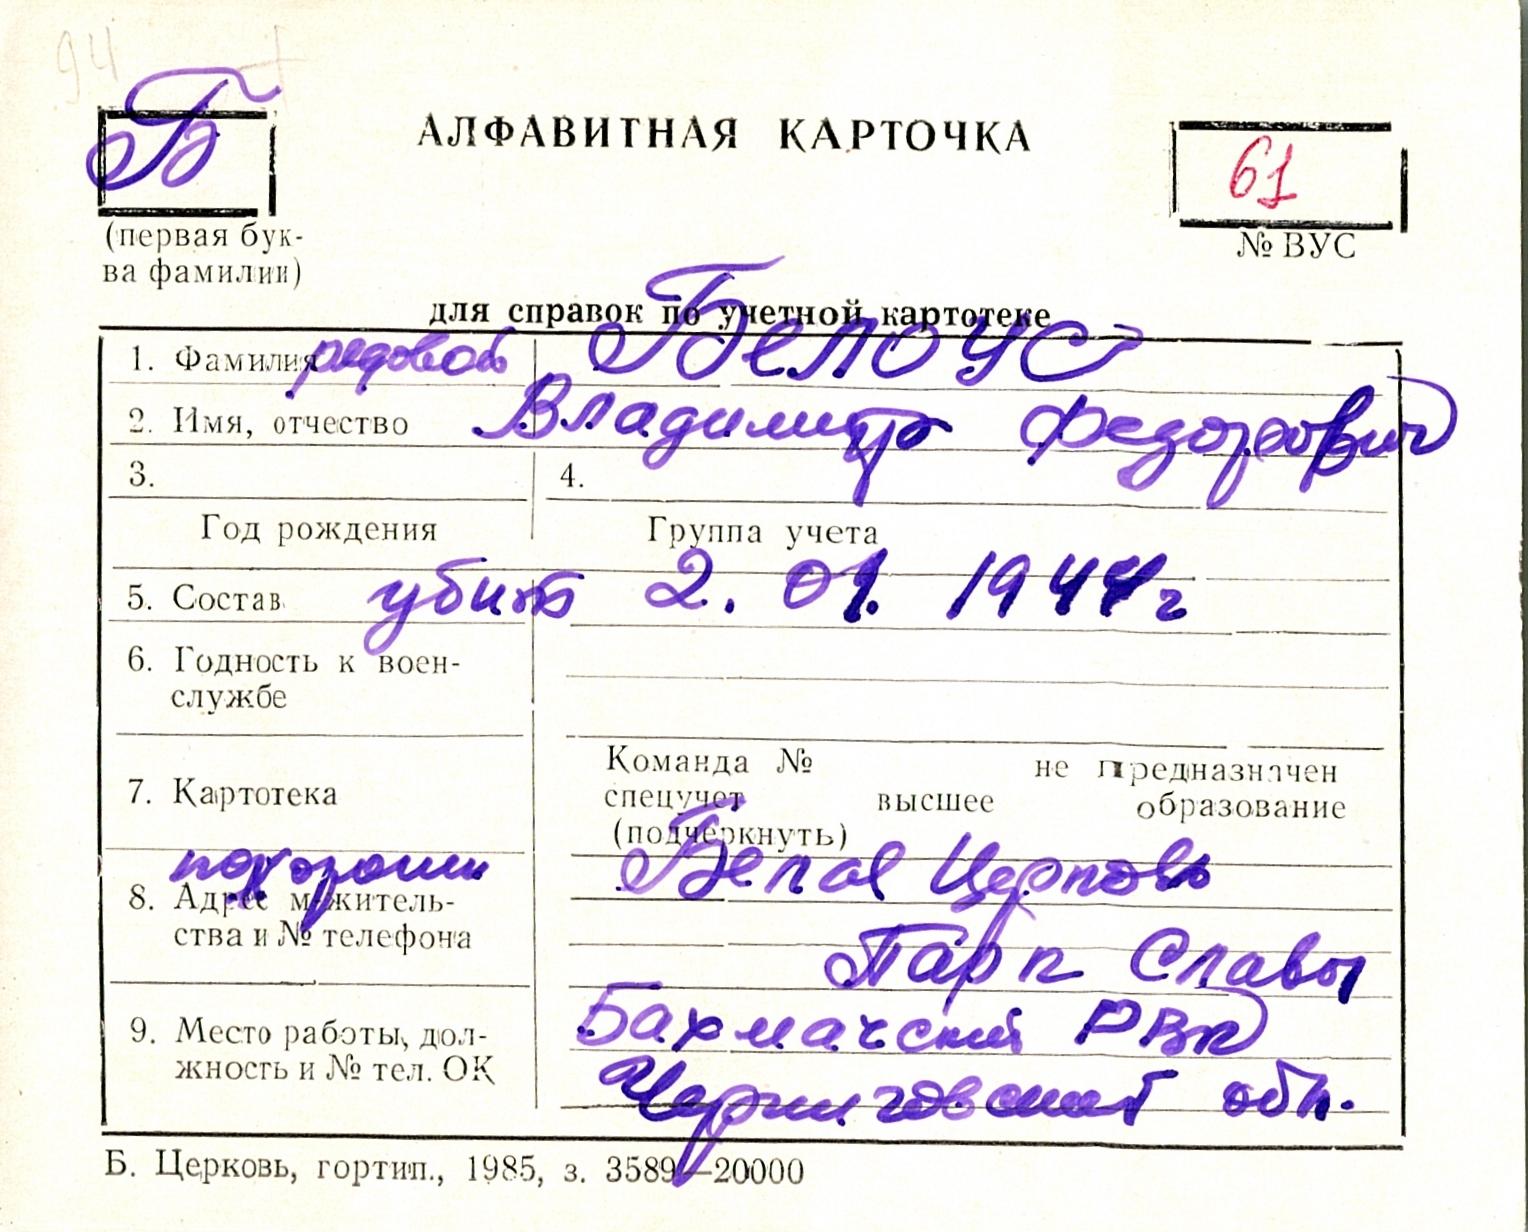 94
Б
АЛФАВИТНАЯ КАРТОЧКА
61
(первая бук-
ва фамилии)
№ ВУС
для справок по учетной картотеке
1. Фамилия рядовой Белоус
2. Имя, отчество Владимир Федорович
3. 4.
Год рождения Группа учета
5. Состав убит 2.01.1944г
6. Годность к воен-
службе
Команда № не предназначен
7. Картотека спецучет высшее образование
(подчеркнуть)
похоронен Белая Церковь
8. Адрес м/житель-
ства и № телефона
Парк Славы
9. Место работы, дол-
жность и № тел. ОК
Бахмачский РВК
Черниговской обл.
Б. Церковь, гортип., 1985, з. 3589—20000